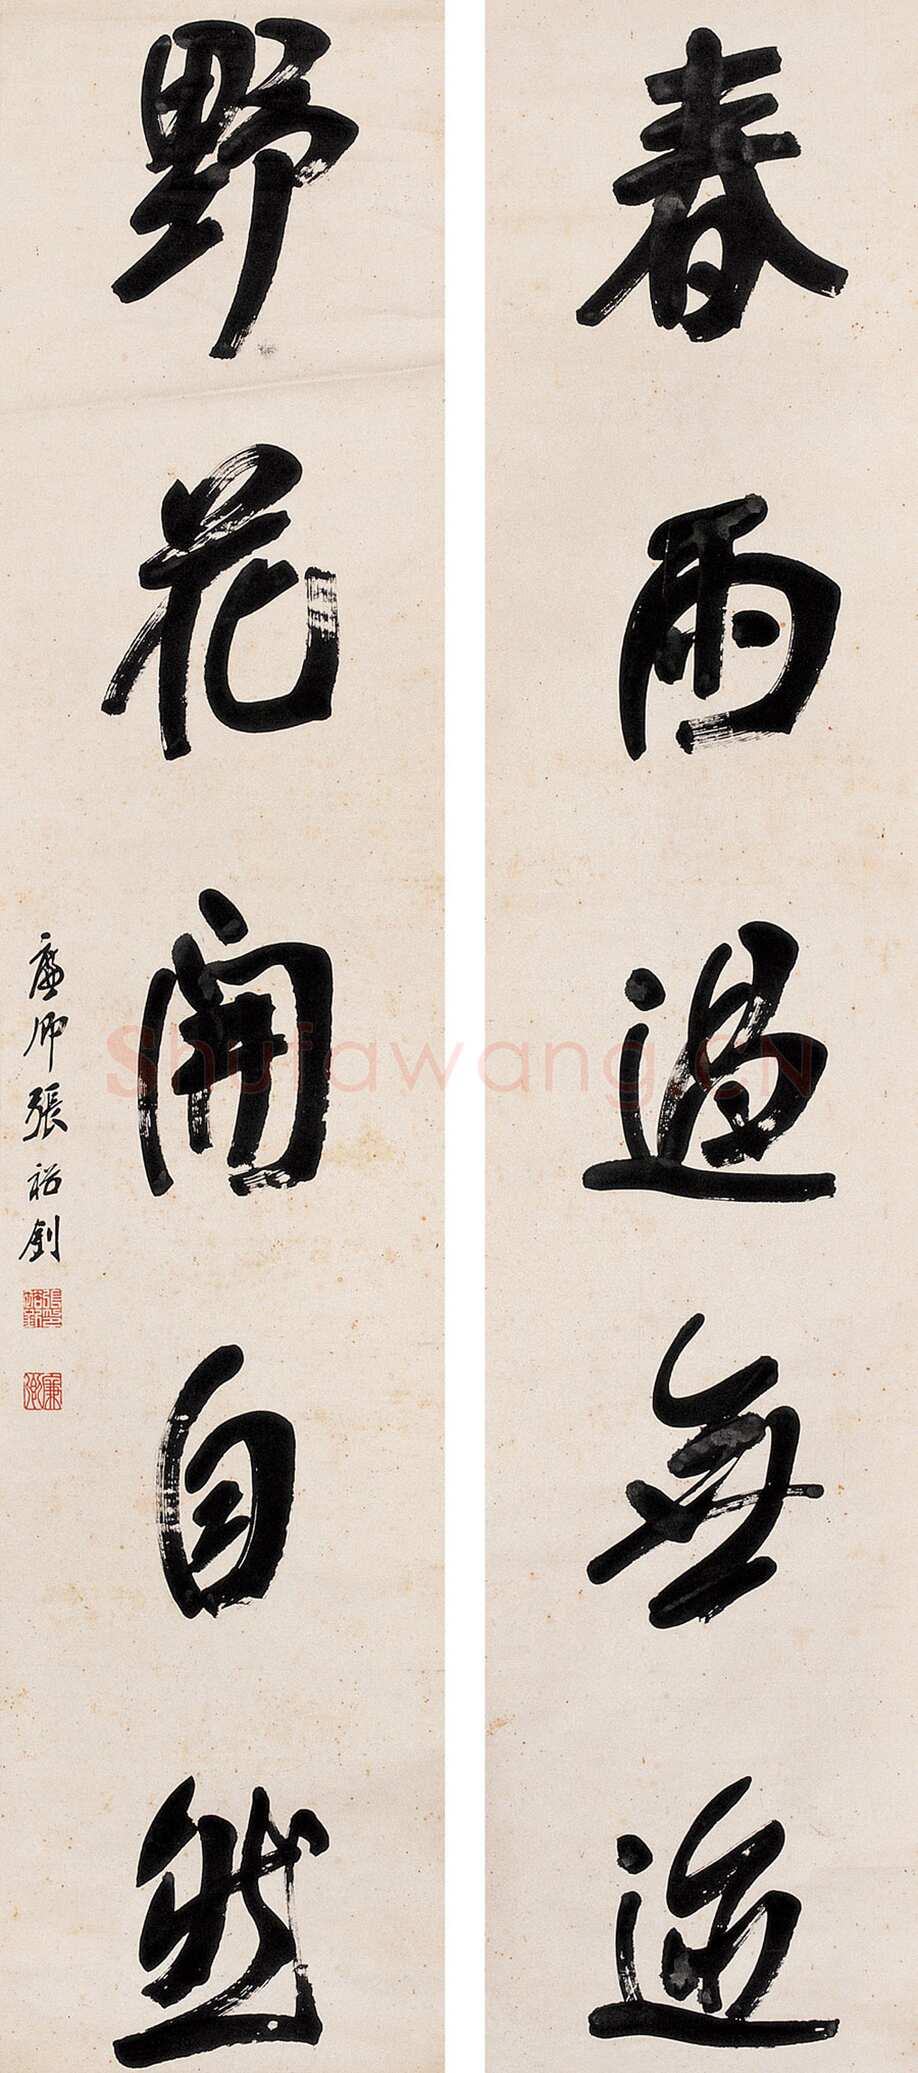 春雨過無迹
野花開自然
廉卿張裕釗
張裕釗印
廉卿
Shufawang.CN